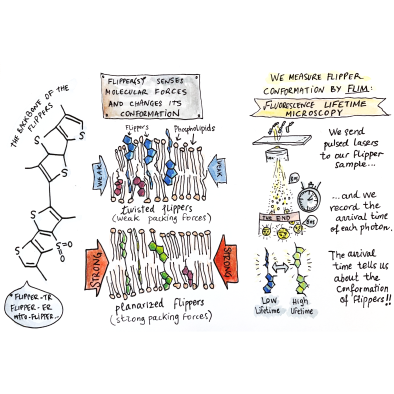 THE BACKBONE OF THE
FLIPPERS
S
S
S
S
S=O
O
* FLIPPER-TR
FLIPPER-ER
MITO-FLIPPER...
FLIPPER(S)* SENSES
MOLECULAR FORCES
AND CHANGES ITS
CONFORMATION
Flippers
Phospholipids
WEAK
WEAK
twisted flippers
(weak packing forces)
STRONG
STRONG
planarized flippers
(strong packing forces)
WE MEASURE FLIPPER
CONFORMATION BY FLIM:
FLUORESCENCE LIFETIME
MICROSCOPY
We send
pulsed lasers
to our Flipper
sample...
THE END
...and we
record the
arrival time
of each photon.
The arrival
time tells us
about the
conformation
of Flippers!!
Low
Lifetime
High
Lifetime